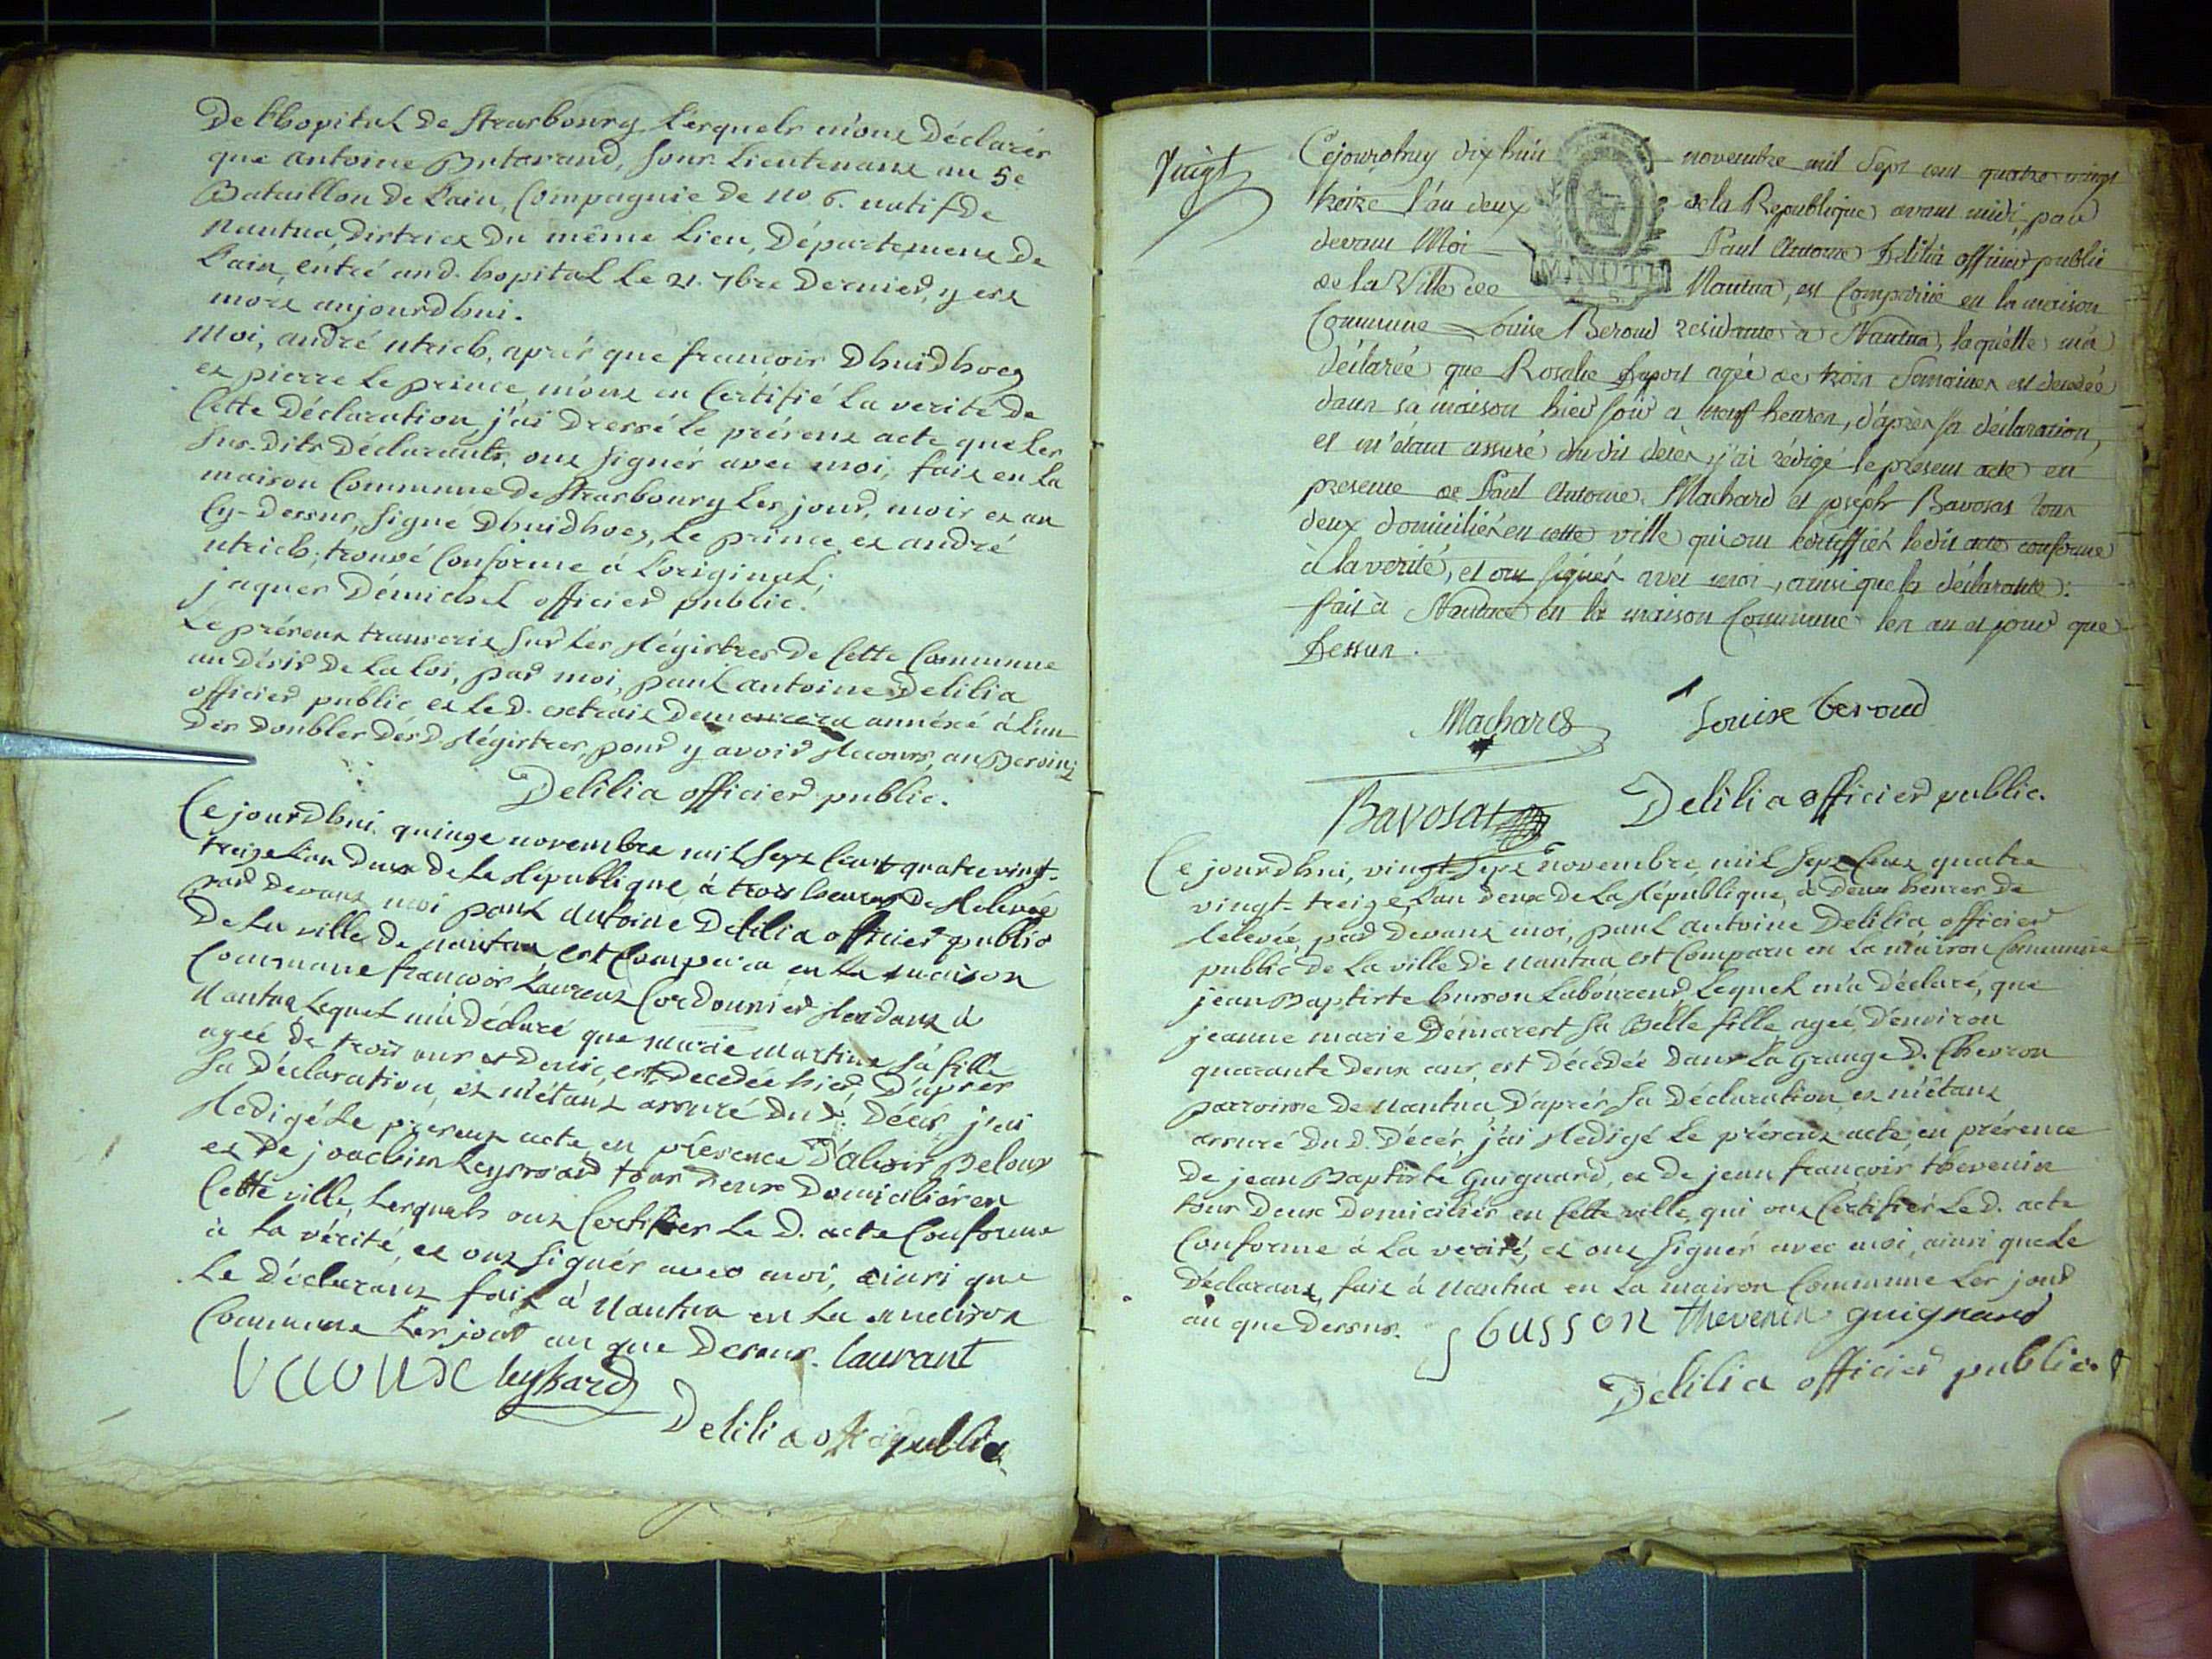 De l'hopital de Strasbourg Lesquels m'ont Déclarés
que antoine Butavand, Sous Lieutenant au 5e
Bataillon de L'ain, Compagnie de no. 6. natif de
nantua, District Du même Lieu, Département De
L'ain, entré aud. hopital Le 21. 7bre Dernier, y est
mort aujourdhui.
Moi, andré utrich, après que francois Dhuidhoes
et pierre Le prince, m'ont en Certifié La verité De
Cette Déclaration, j'ai Dressé le présent acte que Les
Sus-Dits Déclarants, ont signés avec moi, fait en La
maison Commune de Strasbourg Les jour, mois et an
Cy-Dessus, signé Dhuidhoes, Le prince, et andré
utrich; trouvé Conforme à L'original;
jaques Démichel officier public.
Le présent transcrit sur Les Régistres De Cette Commune
au désir De La Loi, par moi, paul antoine Delilia
officier public et Le D. extrait Demeurera annéxé à L'un
Des Doubles Desd. Régistres, pour y avoir Recours, au Besoin;
Delilia officier public.
Ce jourdhui quinze novembre mil sept Cent quatre vingt-
treize L'an Deux De La République à trois heures De Relevée
par Devant moi paul antoine Delilia officier public
De La ville De nantua est Comparu en La maison
Commune francois Laurent Cordonnier Residant à
nantua, Lequel m'a Déclaré que marie martine sa fille
agée de trois ans et Demie, est Décédée hier, D'après
sa Déclaration, et m'étant assuré Du D. Décès j'ai
Redigé Le présent acte, en présence D'aloïs Beloux
et De joachim Leyssard tous Deux Domiciliés en
Cette ville, Lesquels ont Certifiés Le D. acte Conforme
à La vérité, et ont signés avec moi, ainsi que
Le Déclarant fait à Nantua en La maison
Commune Les jour an que Dessus. Laurant
Leyssard
Delilia offici public
Vingt
MINUTE
Cejourdhuy dix huit novembre mil Sept cent quatre vingt
treize l'an deux de la Republique avant midi, par
devant Moi Paul Antoine Delilia officier public
de la Ville de Nantua, est Comparüe en la maison
Commune Louise Beroud residante à Nantua, laquelle m'a
déclarée que Rosalie Duport agée de trois Semaines est decedée
dans sa maison hier soir a neuf heures, d'après sa déclaration,
et m'étant assuré du dit dècès, j'ai rédigé le present acte en
presence de Paul Antoine Machard et joseph Bavosat tous
deux domiciliés en cette ville qui ont certiffiés ledit acte conforme
à la verité, et ont signés avec moi, ainsi que la déclarante:
fait à Nantua en la maison Commune les an et jour que
Dessus.
Machard Louise beroud
Bavosat Delilia officier public.
Ce jourdhui, vingt-sept novembre, mil sept Cent quatre
vingt-treize, L'an Deux De La République, à Deux heures De
Relevée, par Devant moi, paul antoine Delilia officier
public De La ville De nantua est Comparu en La maison Commune
jean Baptiste husson Laboureur Lequel m'a Déclaré, que
jeanne marie Démarest sa Belle fille agée, D'environ
quarante Deux ans, est Décédée Dans La grange D. Chevron
parroisse De nantua D'après sa Déclaration, et m'étant
assuré Du D. Décès, j'ai Redigé Le présent acte, en présence
De jean Baptiste Guignard, et De jean francois thevenin
tous Deux Domiciliés en Cette ville, qui ont Certifiés Le D. acte
Conforme à La verité, et ont signés avec moi, ainsi que Le
Déclarant, fait à nantua en La maison Commune Les jour
an que Dessus. gusson thevenin guignard
Delilia officier public.